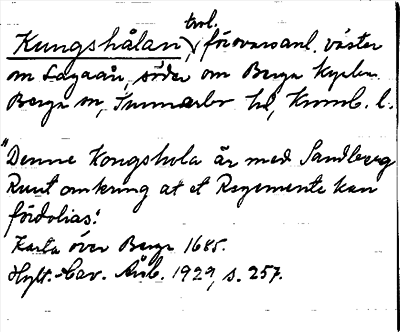 trol.
Kungshålan, försvarsanl. väster
om Lagaån, söder om Berga kyrka.
Berga sn, Sunnerbo hd, Kronob. l.
"Denne Kongshola är med Sandberg
Runt omkring at et Regemente kan
fördolias."
Karta över Berga 1685.
Hylt.-Cav. Årsb. 1929, s. 257.